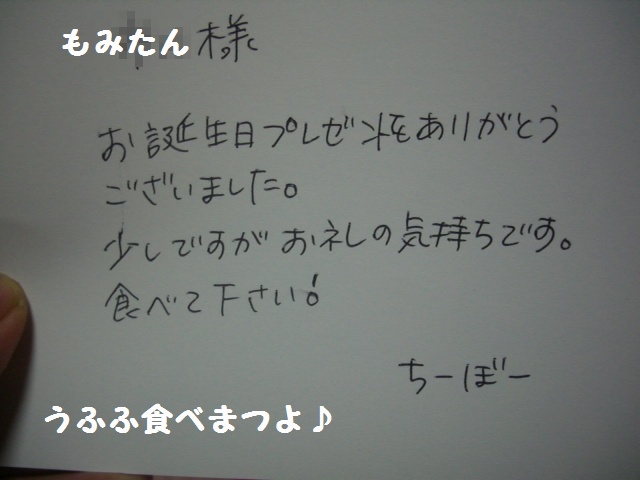 もみたん様
お誕生日プレゼントをありがとう
ございました。
少しですがお礼の気持ちです。
食べて下さい!
ちーぼー
うふふ食べまつよ♪